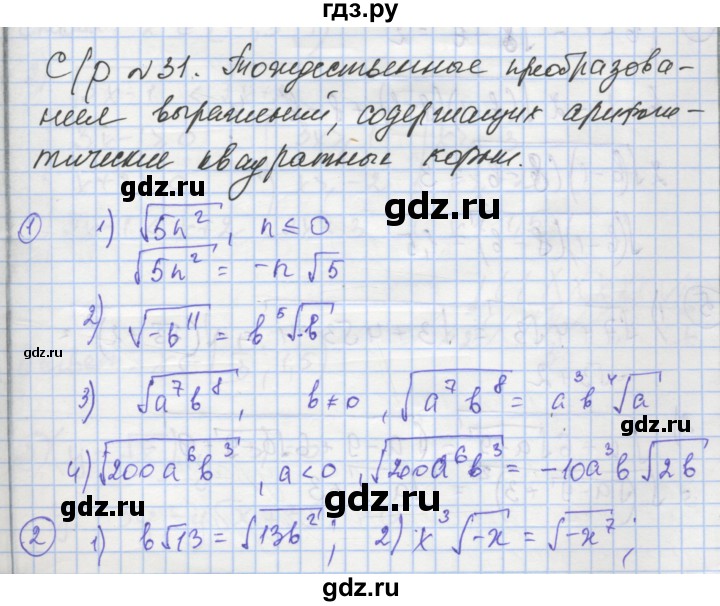 гдз.ру
С/р №31. Тождественные преобразова-
ния выражений, содержащих арифме-
тические квадратные корни.
gdz.ru
gdz.ru
① 1) √5n², n ≤ 0
gdz.ru
√5n² = -n √5
gdz.ru
2) √-b¹¹ = b⁵ √-b
gdz.ru
gdz.ru
3) √a⁷b⁸, b ≠ 0, √a⁷b⁸ = a³b⁴√a
gdz.ru
4) √200a⁶b³, a < 0, √200a⁶b³ = -10a³b √2b
gdz.ru
gdz.ru
② 1) b√13 = √13b²; 2) x³ √-x = √-x⁷;
gdz.ru
gdz.ru